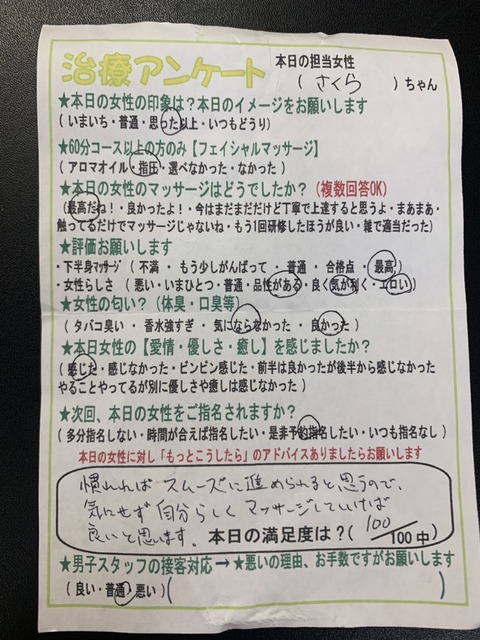 治療アンケート
本日の担当女性
( さくら )ちゃん
★本日の女性の印象は?本日のイメージをお願いします
(いまいち・普通・思った以上・いつもどうり)
★60分コース以上の方のみ【フェイシャルマッサージ】
(アロマオイル・指圧・選べなかった・なかった)
★本日の女性のマッサージはどうでしたか?(複数回答OK)
(最高だね!・良かったよ!・今はまだまだだけど丁寧で上達すると思うよ・まあまあ・
触ってるだけでマッサージじゃないね・もう1回研修したほうが良い・雑で適当だった)
★評価お願いします
・下半身マッサージ(不満・もう少しがんばって・普通・合格点・最高)
・女性らしさ(悪い・いまひとつ・普通・品性がある・良く気が利く・エロい)
★女性の匂い?(体臭・口臭等)
(タバコ臭い・香水強すぎ・気にならなかった・良かった)
★本日女性の【愛情・優しさ・癒し】を感じましたか?
(感じた・感じなかった・ビンビン感じた・前半は良かったが後半から感じなかった
やることやってるが別に優しさや癒しは感じなかった)
★次回、本日の女性をご指名されますか?
(多分指名しない・時間が合えば指名したい・是非予約指名したい・いつも指名なし)
本日の女性に対し「もっとこうしたら」のアドバイスありましたらお願いします
慣れればスムーズに進められると思うので、
気にせず自分らしくマッサージしていけば
良いと思います。 本日の満足度は?( 100/100中)
★男子スタッフの接客対応→★悪いの理由、お手数ですがお願いします
(良い・普通・悪い)( )